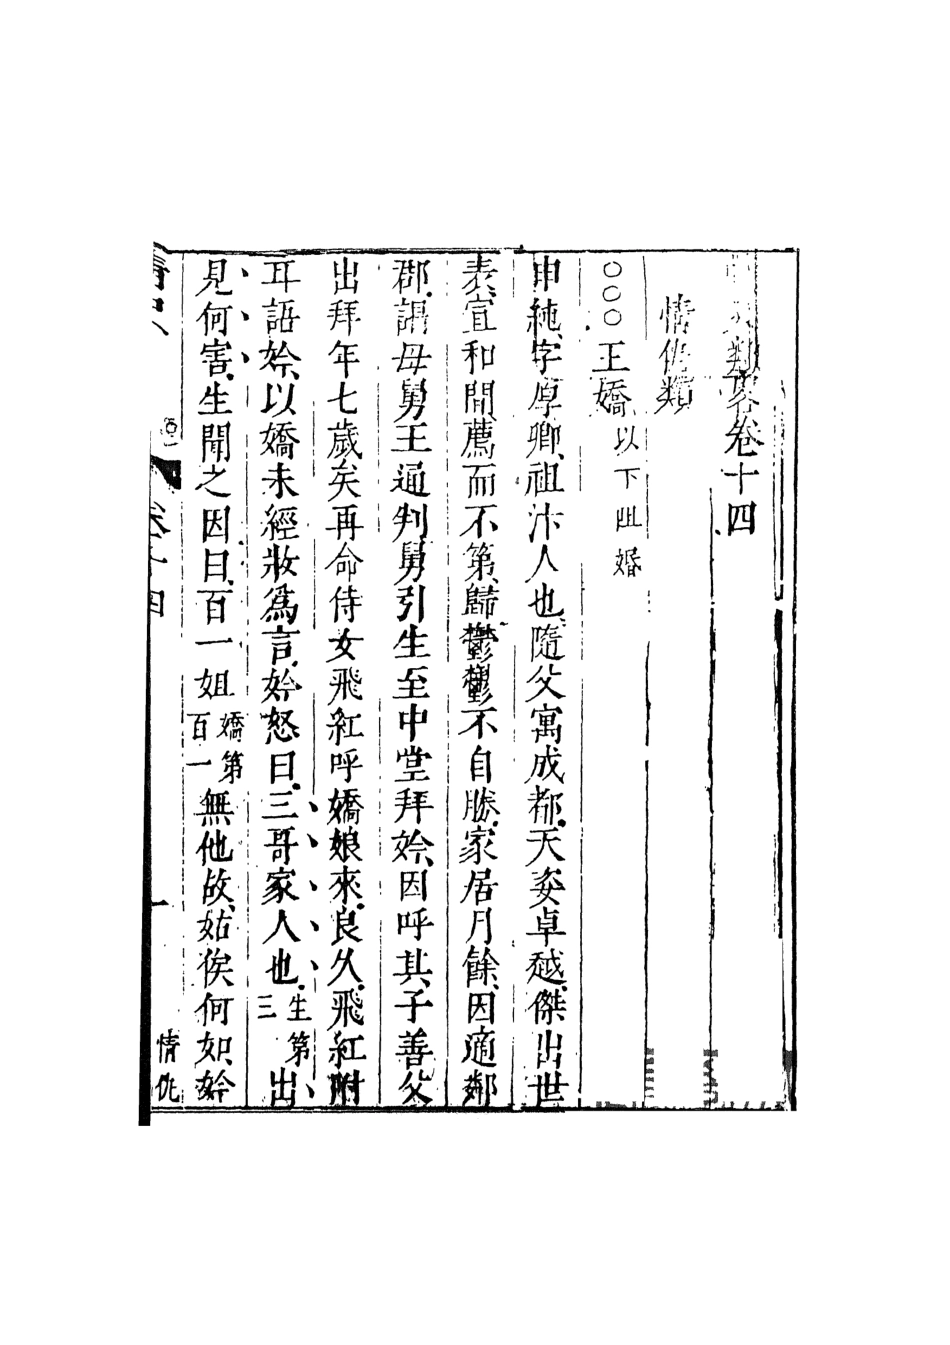 類畧卷十四
情仇類
○○○王嬌以下阻婚
申純字厚卿祖汴人也隨父寓成都天姿卓越傑出世
表宣和間薦而不第歸鬱鬱不自勝家居月餘因適鄰
郡謁母舅王通判舅引生至中堂拜妗因呼其子善父
出拜年七歲矣再命侍女飛紅呼嬌娘來良久飛紅附
耳語妗以嬌未經妝爲言妗怒曰三哥家人也生第三出
見何害生聞之因曰百一姐嬌第百一無他故姑俟何如妗
情史
卷十四
一
情仇